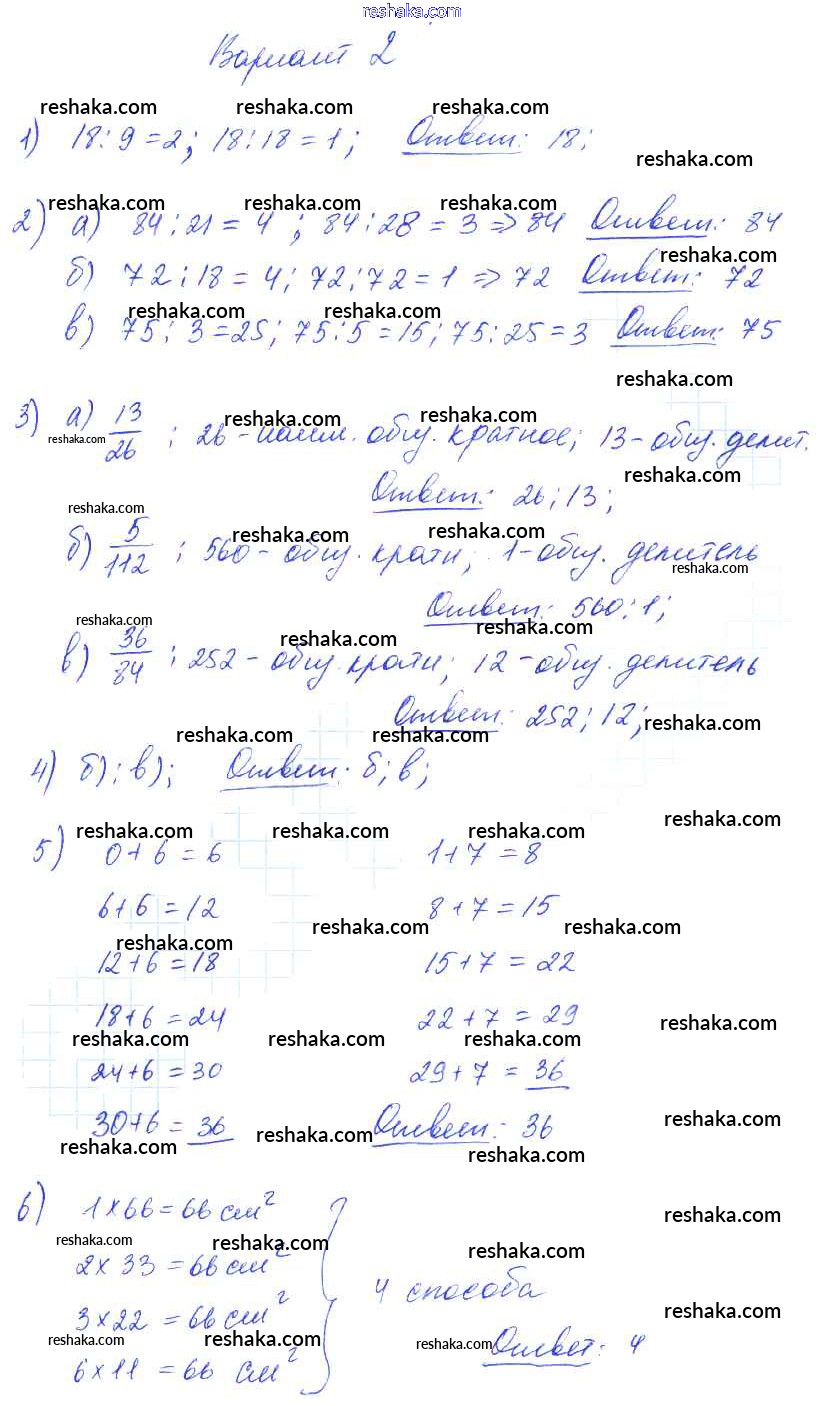 reshaka.com
Вариант 2
reshaka.com reshaka.com reshaka.com
1) 18:9=2; 18:18=1; Ответ: 18;
reshaka.com
reshaka.com reshaka.com reshaka.com
2) а) 84:21=4; 84:28=3 => 84 Ответ: 84
reshaka.com
б) 72:18=4; 72:72=1 => 72 Ответ: 72
reshaka.com reshaka.com
в) 75:3=25; 75:5=15; 75:25=3 Ответ: 75
reshaka.com
3) а) 13/26; 26-наим. общ. кратное; 13-общ. делит.
reshaka.com reshaka.com reshaka.com
reshaka.com
Ответ: 26; 13;
reshaka.com
б) 5/112; 560-общ. кратн; 1-общ. делитель
reshaka.com reshaka.com
reshaka.com
Ответ: 560; 1;
reshaka.com reshaka.com
в) 36/84; 252-общ. кратн; 12-общ. делитель
reshaka.com
Ответ: 252; 12;
reshaka.com
reshaka.com reshaka.com
4) б); в); Ответ: б; в;
reshaka.com
reshaka.com reshaka.com reshaka.com
5) 0+6=6 1+7=8
6+6=12 8+7=15
reshaka.com reshaka.com
reshaka.com
12+6=18 15+7=22
18+6=24 22+7=29
reshaka.com
reshaka.com reshaka.com reshaka.com
24+6=30 29+7=36
reshaka.com
30+6=36 Ответ: 36
reshaka.com
reshaka.com reshaka.com
6) 1×66=66 см²
reshaka.com
reshaka.com reshaka.com reshaka.com
2×33=66 см²
4 способа
3×22=66 см²
reshaka.com
reshaka.com reshaka.com reshaka.com
6×11=66 см² Ответ: 4